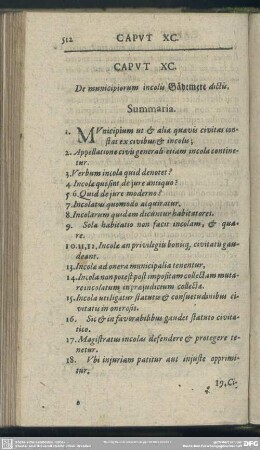 512 CAPVT XC.
CAPVT XC.
De municipiorum incolis Gådemere dictis.
Summaria.
1. MVnicipium ut & alia quævis civitas con-
stat ex civibus & incolis;
2. Appellatione civis generali etiam incola contine-
tur.
3. Verbum incola quid denotet?
4. Incolæ qui sint de jure antiquo?
5 6. Quid de jure moderno?
7. Incolatus quomodo acquiratur.
8. Incolarum quidam dicuntur habitatores.
9. Sola habitatio non facit incolam, & qua-
re.
10. 11, 12, Incolæ an privilegiis bonisq, civitatis gau-
deant.
13. Incolæ ad onera municipalia tenentur,
14. Incola non potest post impositam collectam muta-
re incolatum in præjudicium collectæ.
15. Incola utiligatur statutis & consuetudinibus ci-
vitatis in onerosis.
16. Sic & in favorabilibus gaudet statuto civita-
tico.
17. Magistratus incolas defendere & protegere te-
netur.
18. Vbi injuriam patitur aut injuste opprimi-
tur;
19. Ci-